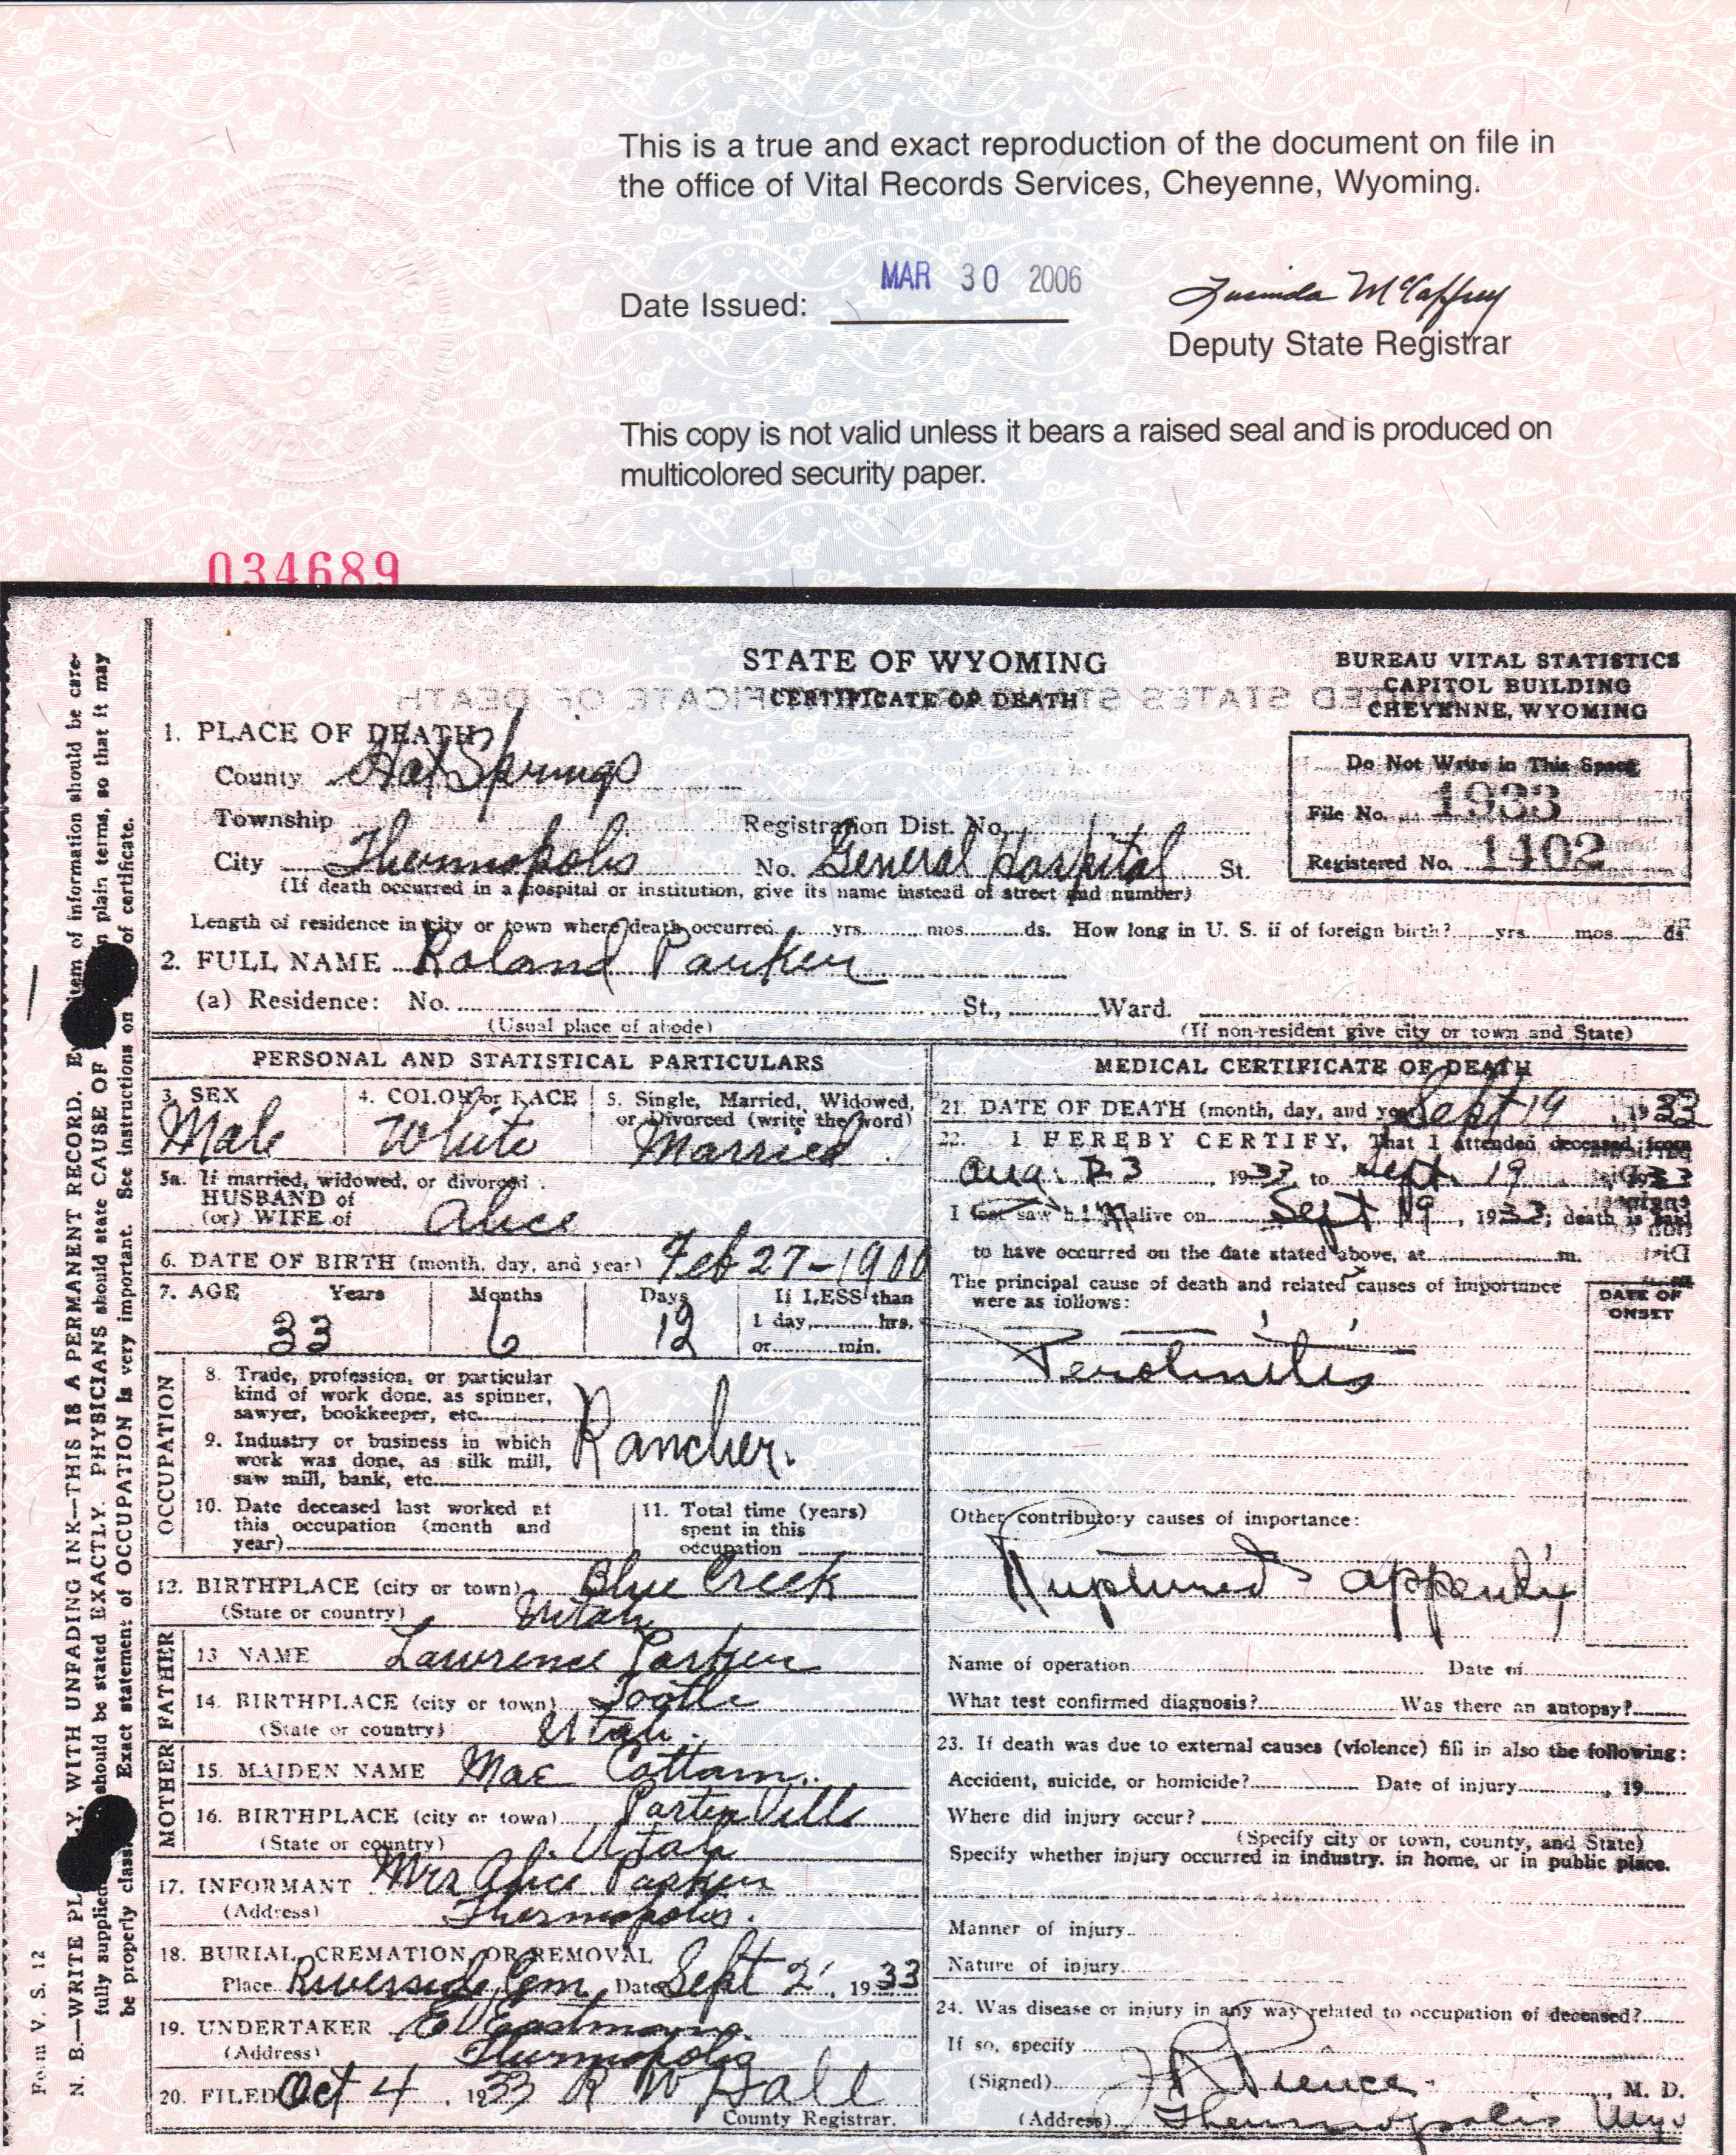 This is a true and exact reproduction of the document on file in
the office of Vital Records Services, Cheyenne, Wyoming.
Date Issued: MAR 30 2006
Lucinda McCaffrey
Deputy State Registrar
This copy is not valid unless it bears a raised seal and is produced on
multicolored security paper.
034689
STATE OF WYOMING
CERTIFICATE OF DEATH
BUREAU VITAL STATISTICS
CAPITOL BUILDING
CHEYENNE, WYOMING
Do Not Write in This Space
File No. 1933
Registered No. 1402
1. PLACE OF DEATH
County Hot Springs
Township Registration Dist. No.
City Thermopolis No. General Hospital St.
(If death occurred in a hospital or institution, give its name instead of street and number)
Length of residence in city or town where death occurred yrs. mos. ds. How long in U. S. if of foreign birth? yrs. mos. ds.
2. FULL NAME Roland Parker
(a) Residence: No. St., Ward.
(Usual place of abode) (If non-resident give city or town and State)
PERSONAL AND STATISTICAL PARTICULARS
3. SEX 4. COLOR or RACE 5. Single, Married, Widowed,
or Divorced (write the word)
Male White Married
5a. If married, widowed, or divorced
HUSBAND of
(or) WIFE of Alice
6. DATE OF BIRTH (month, day, and year) Feb 27-1900
7. AGE Years Months Days If LESS than
1 day, hrs.
33 6 12 or min.
OCCUPATION
8. Trade, profession, or particular
kind of work done, as spinner,
sawyer, bookkeeper, etc.
Rancher.
9. Industry or business in which
work was done, as silk mill,
saw mill, bank, etc.
10. Date deceased last worked at
this occupation (month and
year)
11. Total time (years)
spent in this
occupation
12. BIRTHPLACE (city or town) Blue Creek
(State or country) Utah
FATHER
13 NAME Lawrence Parker
14. BIRTHPLACE (city or town) Tooele
(State or country) Utah.
MOTHER
15. MAIDEN NAME Mae Cottam
16. BIRTHPLACE (city or town)
(State or country) Utah
17. INFORMANT Mrs Alice Parker
(Address) Thermopolis.
18. BURIAL, CREMATION OR REMOVAL
Place Riverside Cem. Date Sept 2 1933
19. UNDERTAKER E V Eastman
(Address) Thermopolis
20. FILED Oct 4, 1933 R W Hall
County Registrar.
MEDICAL CERTIFICATE OF DEATH
21. DATE OF DEATH (month, day, and year) Sept 19, 1933
22. I HEREBY CERTIFY, That I attended deceased from
Aug. 23, 1933, to Sept. 19, 1933
I last saw him alive on Sept 19, 1933; death is said
to have occurred on the date stated above, at m.
The principal cause of death and related causes of importance
were as follows:
DATE OF
ONSET
Perotinitis
Other contributory causes of importance:
Ruptured appendix
Name of operation Date of
What test confirmed diagnosis? Was there an autopsy?
23. If death was due to external causes (violence) fill in also the following:
Accident, suicide, or homicide? Date of injury , 19
Where did injury occur?
(Specify city or town, county, and State)
Specify whether injury occurred in industry, in home, or in public place.
Manner of injury
Nature of injury
24. Was disease or injury in any way related to occupation of deceased?
If so, specify
(Signed) Pience , M. D.
(Address) Thermopolis Wyo
N. B.—WRITE PLAINLY, WITH UNFADING INK—THIS IS A PERMANENT RECORD. Every item of information should be care-
fully supplied. should be stated EXACTLY. PHYSICIANS should state CAUSE OF in plain terms, so that it may
be properly class. Exact statement of OCCUPATION is very important. See instructions on of certificate.
Form V. S. 12